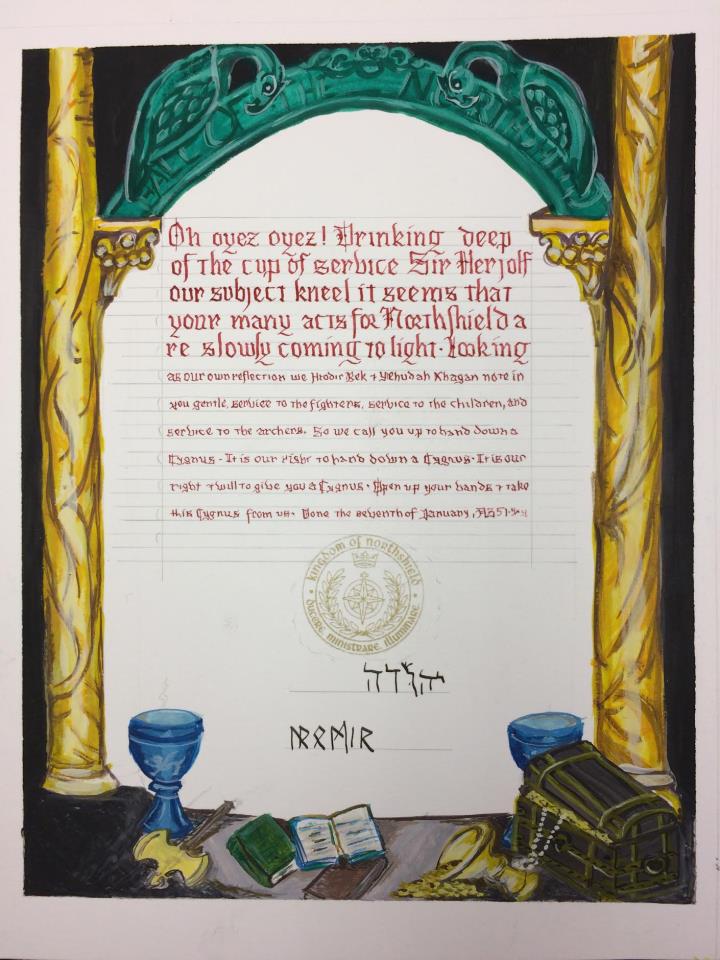 OF THE
Oh oyez oyez! Drinking deep
of the cup of service Sir Herjolf
our subject kneel it seems that
your many acts for Northshield a
re slowly coming to light. Looking
as our own reflection we Hrodir Rek + Yehudah Khagan note in
you gentle, service to the fighters, service to the children, and
service to the archers. So we call you up to hand down a
Cygnus - It is our right to hand down a Cygnus. It is our
right + will to give you a Cygnus. Open up your hands + take
this Cygnus from us. Done the seventh of January, AS 51.
kingdom of northshield
ducere, ministrare, illuminare
יהודה
ᚺᚱᛟᛞᛁᚱ